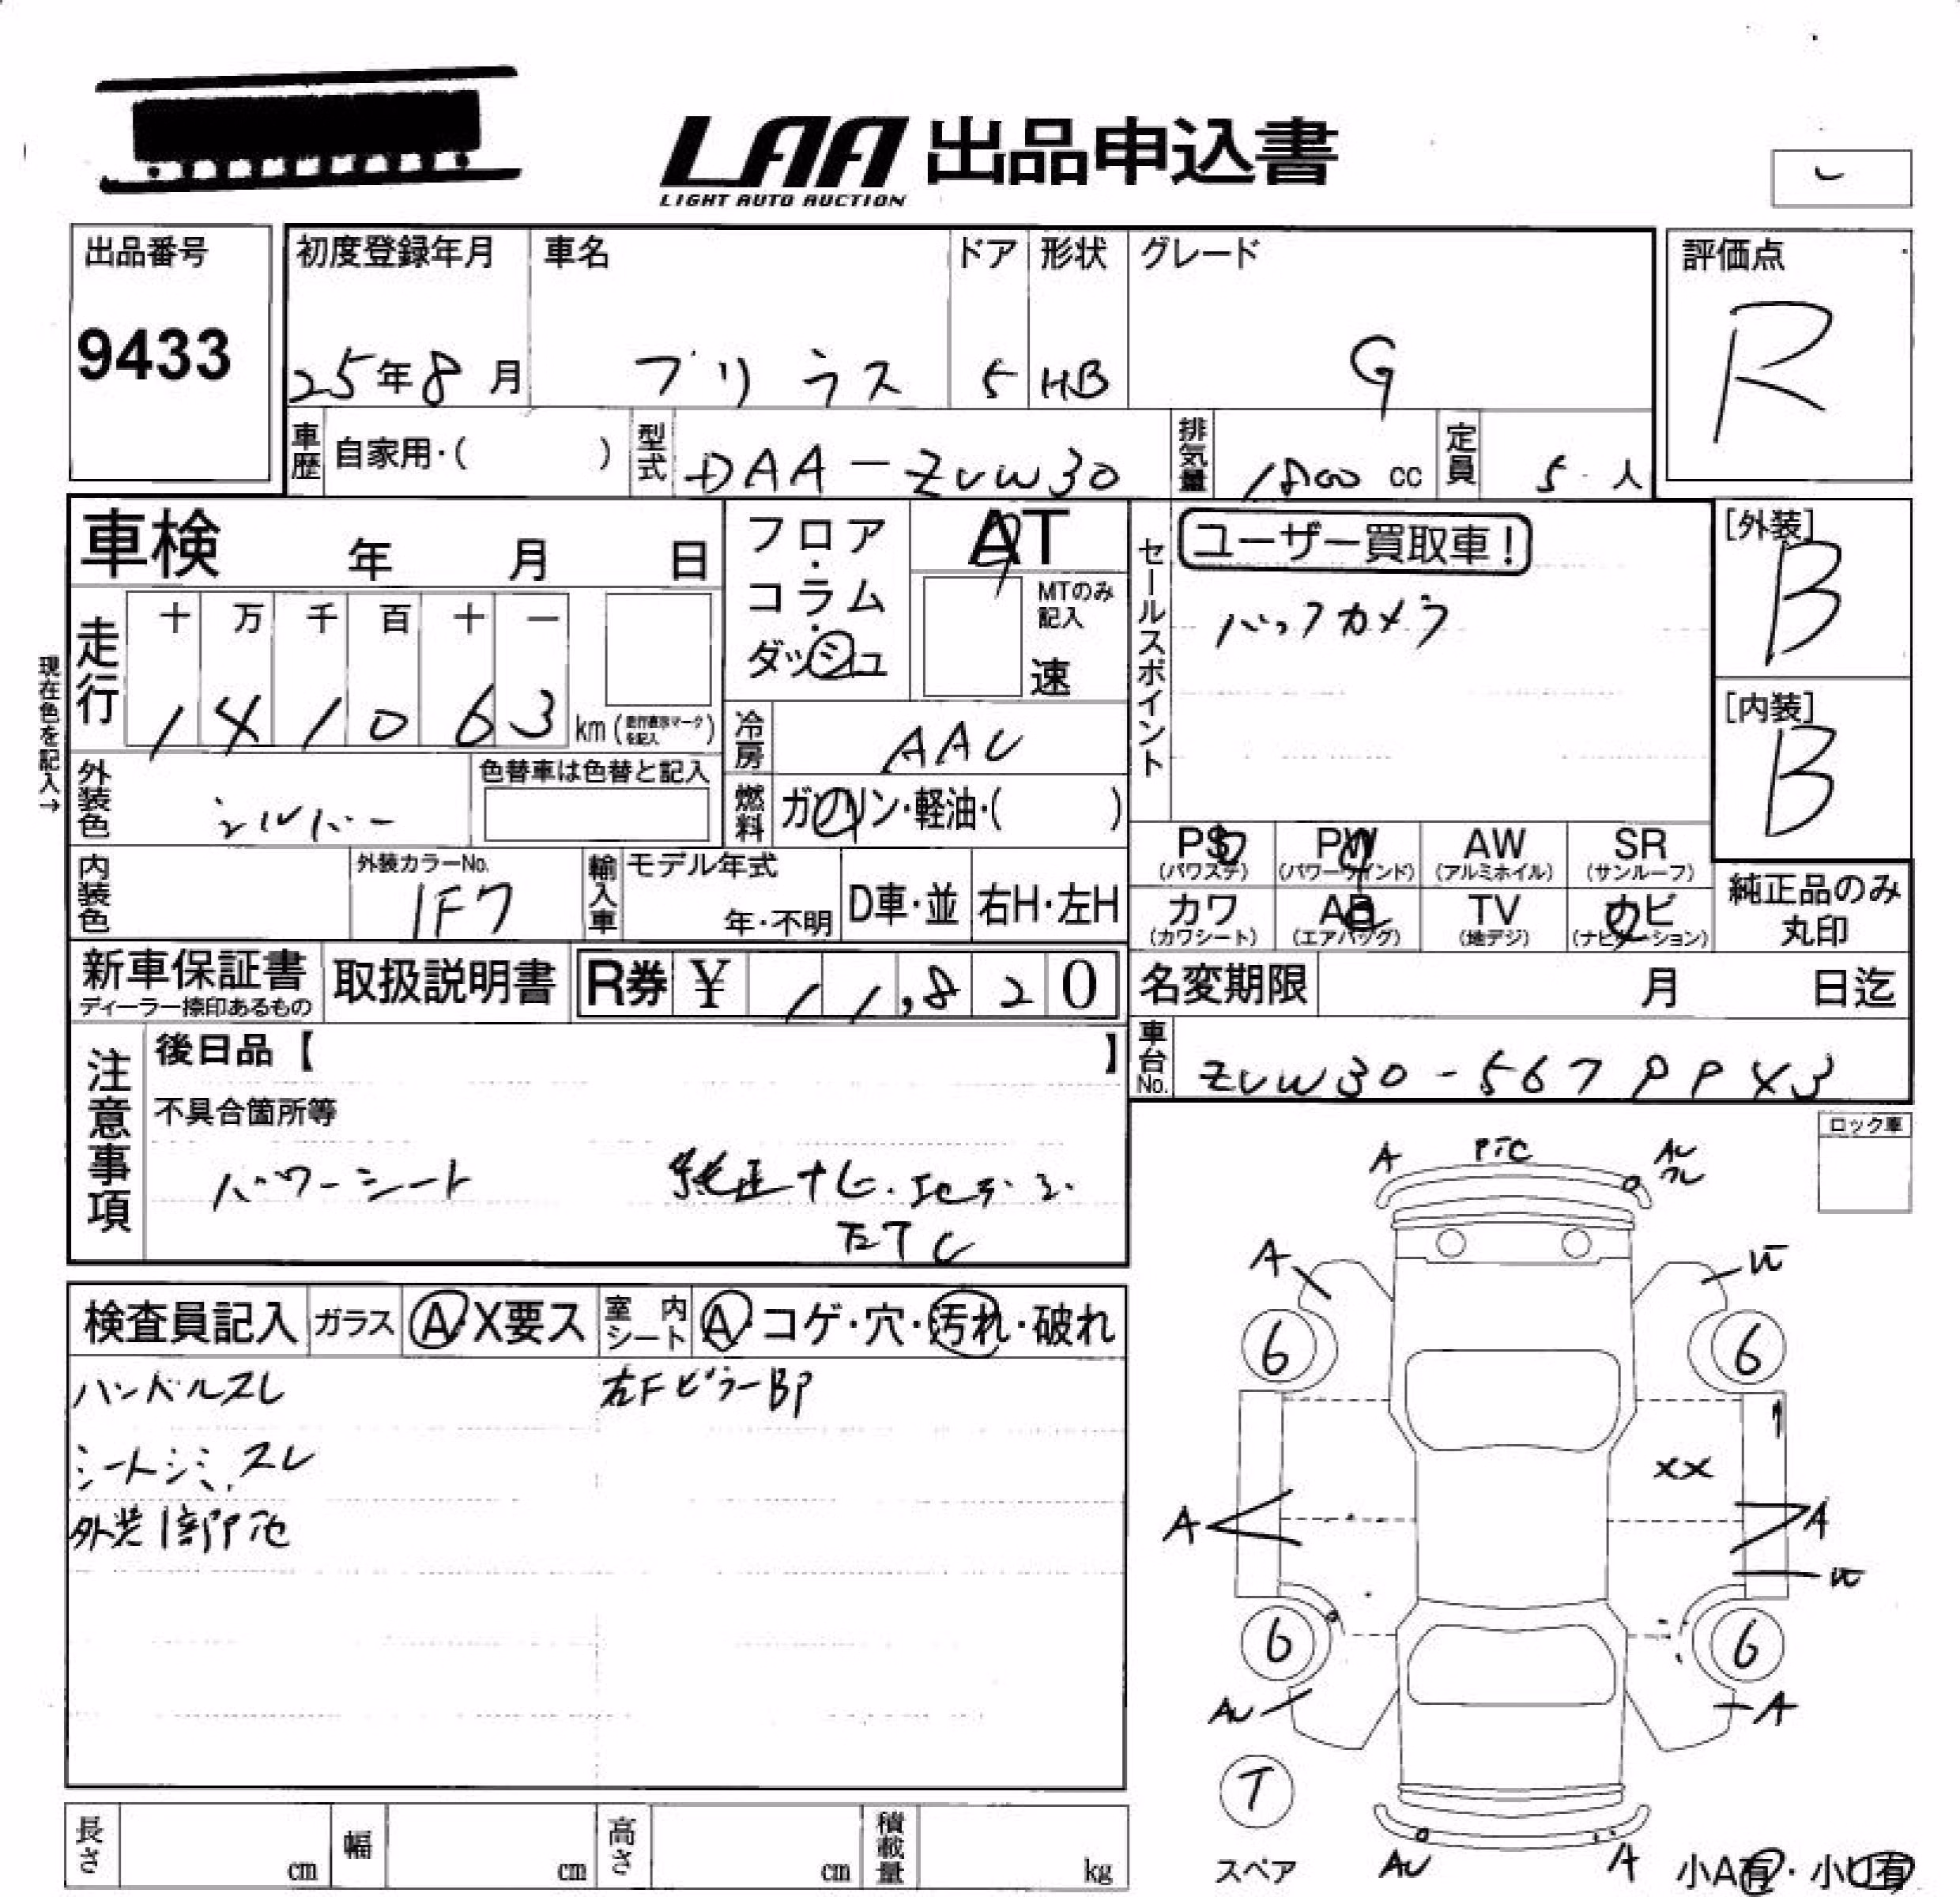 LAA 出品申込書
LIGHT AUTO AUCTION
出品番号
9433
初度登録年月
25年8月
車名
プリウス
ドア
5
形状
HB
グレード
G
評価点
R
車歴
自家用・( )
型式
DAA-ZVW30
排気量
1800 cc
定員
5人
車検 年 月 日
フロア・コラム・ダッシュ
AT
MTのみ記入
速
現在色を記入→
走行
十 万 千 百 十 一
141063 km(走行表示マークを記入)
冷房
AAC
セールスポイント
ユーザー買取車!
バックカメラ
[外装]
B
[内装]
B
外装色
シルバー
色替車は色替と記入
燃料
ガソリン・軽油・( )
内装色
外装カラーNo.
1F7
輸入車
モデル年式
年・不明
D車・並
右H・左H
PS
(パワステ)
PW
(パワーウインド)
AW
(アルミホイル)
SR
(サンルーフ)
カワ
(カワシート)
AB
(エアバッグ)
TV
(地デジ)
ナビ
(ナビゲーション)
純正品のみ丸印
新車保証書
ディーラー捺印あるもの
取扱説明書
R券 ¥ 11,820
名変期限 月 日迄
車台No.
注意事項
後日品【 】
不具合箇所等
パワーシート
純正ナビ
ETC
ロック車
検査員記入
ガラス
A X要ス
室内シート
A・コゲ・穴・汚れ・破れ
ハンドルスレ
FピラーBP
シートシミ、スレ
外装1部
A
A
A
6
6
XX
A
A
6
6
A
T
スペア
A
小A有・小U有
長さ cm
幅 cm
高さ cm
積載量 kg